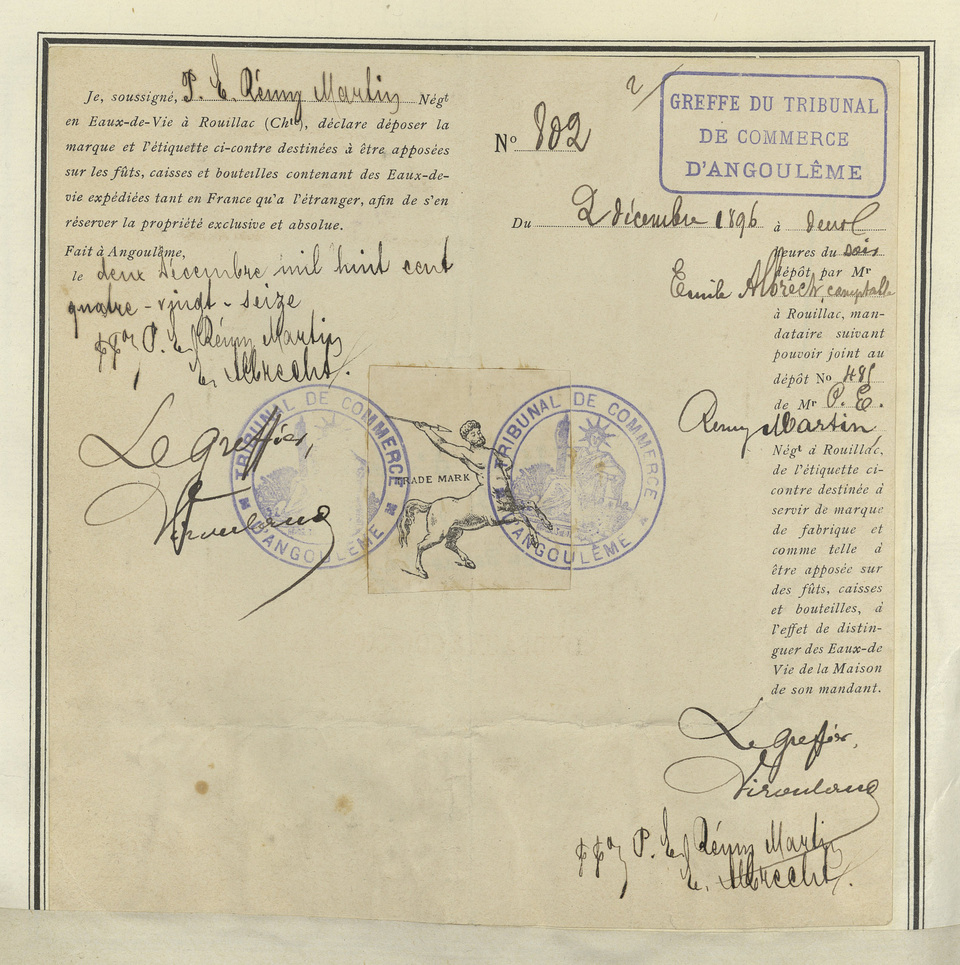 Je, soussigné, P. E. Rémy Martin Négt
en Eaux-de-Vie à Rouillac (Chte), déclare déposer la
marque et l'étiquette ci-contre destinées à être apposées
sur les fûts, caisses et bouteilles contenant des Eaux-de-
vie expédiées tant en France qu'a l'étranger, afin de s'en
réserver la propriété exclusive et absolue.
Fait à Angoulême,
le deux Décembre mil huit cent
quatre-vingt-seize
ppon P. E. Rémy Martin
E. Albrecht.
Le Greffier,
TRIBUNAL DE COMMERCE
D'ANGOULÊME
TRADE MARK
TRIBUNAL DE COMMERCE
D'ANGOULÊME
2/
GREFFE DU TRIBUNAL
DE COMMERCE
D'ANGOULÊME
No 802
Du 2 décembre 1896 à deux
heures du soir
dépôt par Mr
Emile Albrecht, comptable
à Rouillac, man-
dataire suivant
pouvoir joint au
dépôt No 485
de Mr P. E.
Remy Martin
Négt à Rouillac,
de l'étiquette ci-
contre destinée à
servir de marque
de fabrique et
comme telle à
être apposée sur
des fûts, caisses
et bouteilles, à
l'effet de distin-
guer des Eaux-de
Vie de la Maison
de son mandant.
Le Greffier,
ppon P. E. Rémy Martin
E. Albrecht.